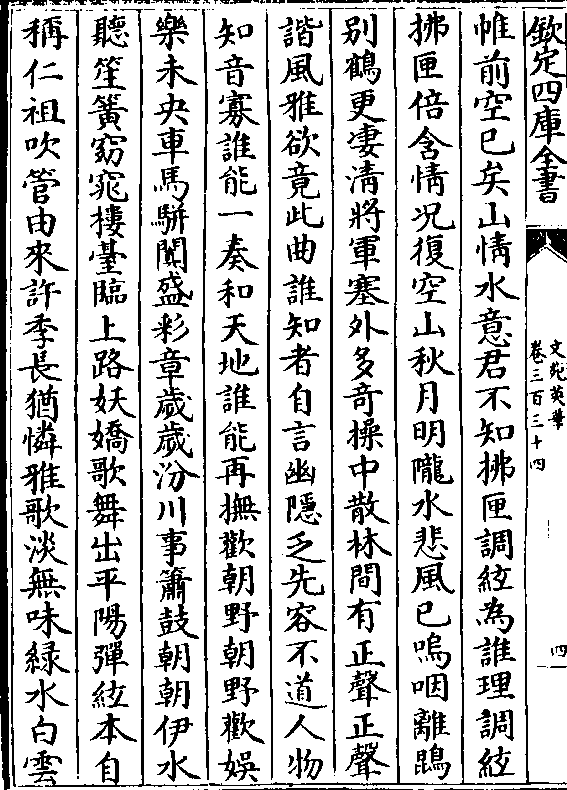 欽定四庫全書
文苑英華
卷三百三十四
四
帷前空已矣山情水意君不知拂匣調絃為誰理調絃
拂匣倍含情况復空山秋月明隴水悲風已嗚咽離鵾
别鶴更凄清將軍塞外多奇操中散林間有正聲正聲
諧風雅欲竟此曲誰知者自言幽隱乏先容不道人物
知音寡誰能一奏和天地誰能再撫歡朝野朝野歡娛
樂未央車馬駢闐盛彩章歲歲汾川事簫鼓朝朝伊水
聽笙簧窈窕樓臺臨上路妖嬌歌舞出平陽彈絃本自
稱仁祖吹管由來許季長猶憐雅歌淡無味緑水白雲